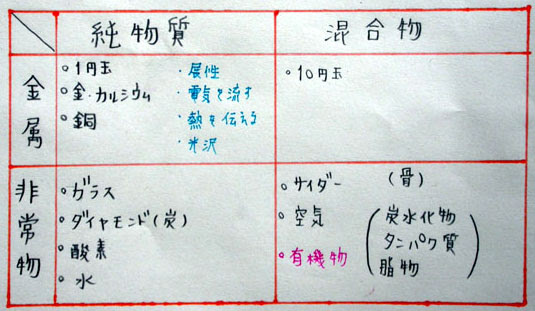 純物質
混合物
金属
・1円玉
・金・カルシウム
・銅
・展性
・電気を流す
・熱を伝える
・光沢
・10円玉
非常物
・ガラス
・ダイヤモンド(炭)
・酸素
・水
・サイダー (骨)
・空気
・有機物
(炭水化物
タンパク質
脂物)